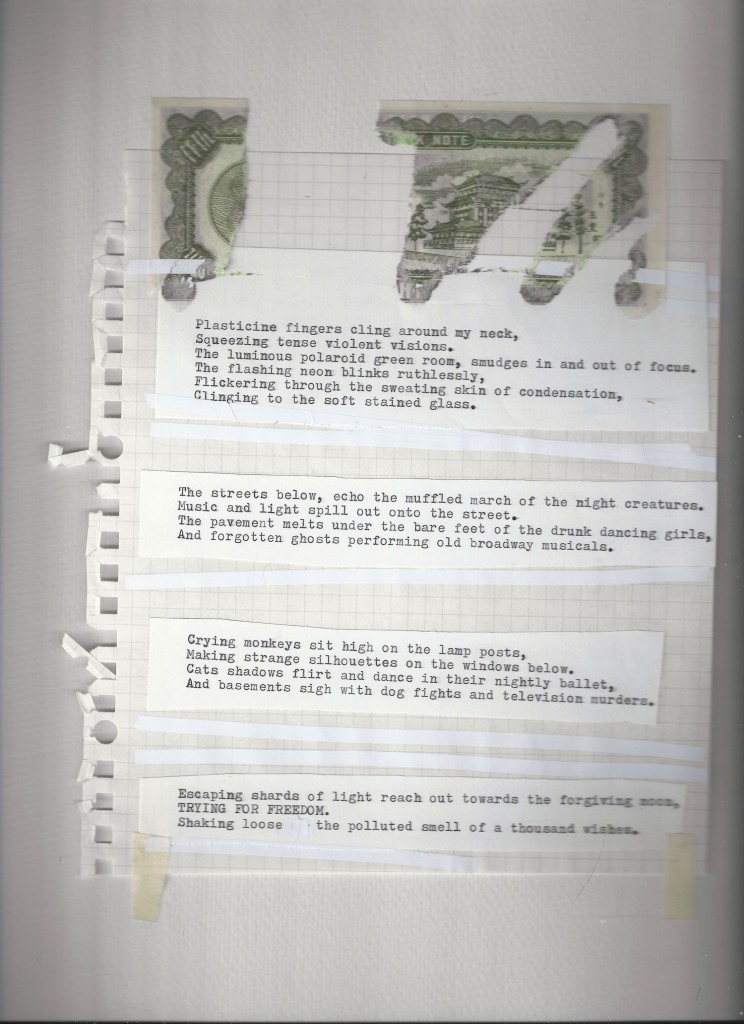 K NOTE
Plasticine fingers cling around my neck,
Squeezing tense violent visions.
The luminous polaroid green room, smudges in and out of focus.
The flashing neon blinks ruthlessly,
Flickering through the sweating skin of condensation,
Clinging to the soft stained glass.
The streets below, echo the muffled march of the night creatures.
Music and light spill out onto the street.
The pavement melts under the bare feet of the drunk dancing girls,
And forgotten ghosts performing old broadway musicals.
Crying monkeys sit high on the lamp posts,
Making strange silhouettes on the windows below.
Cats shadows flirt and dance in their nightly ballet,
And basements sigh with dog fights and television murders.
Escaping shards of light reach out towards the forgiving moon,
TRYING FOR FREEDOM.
Shaking loose the polluted smell of a thousand wishes.